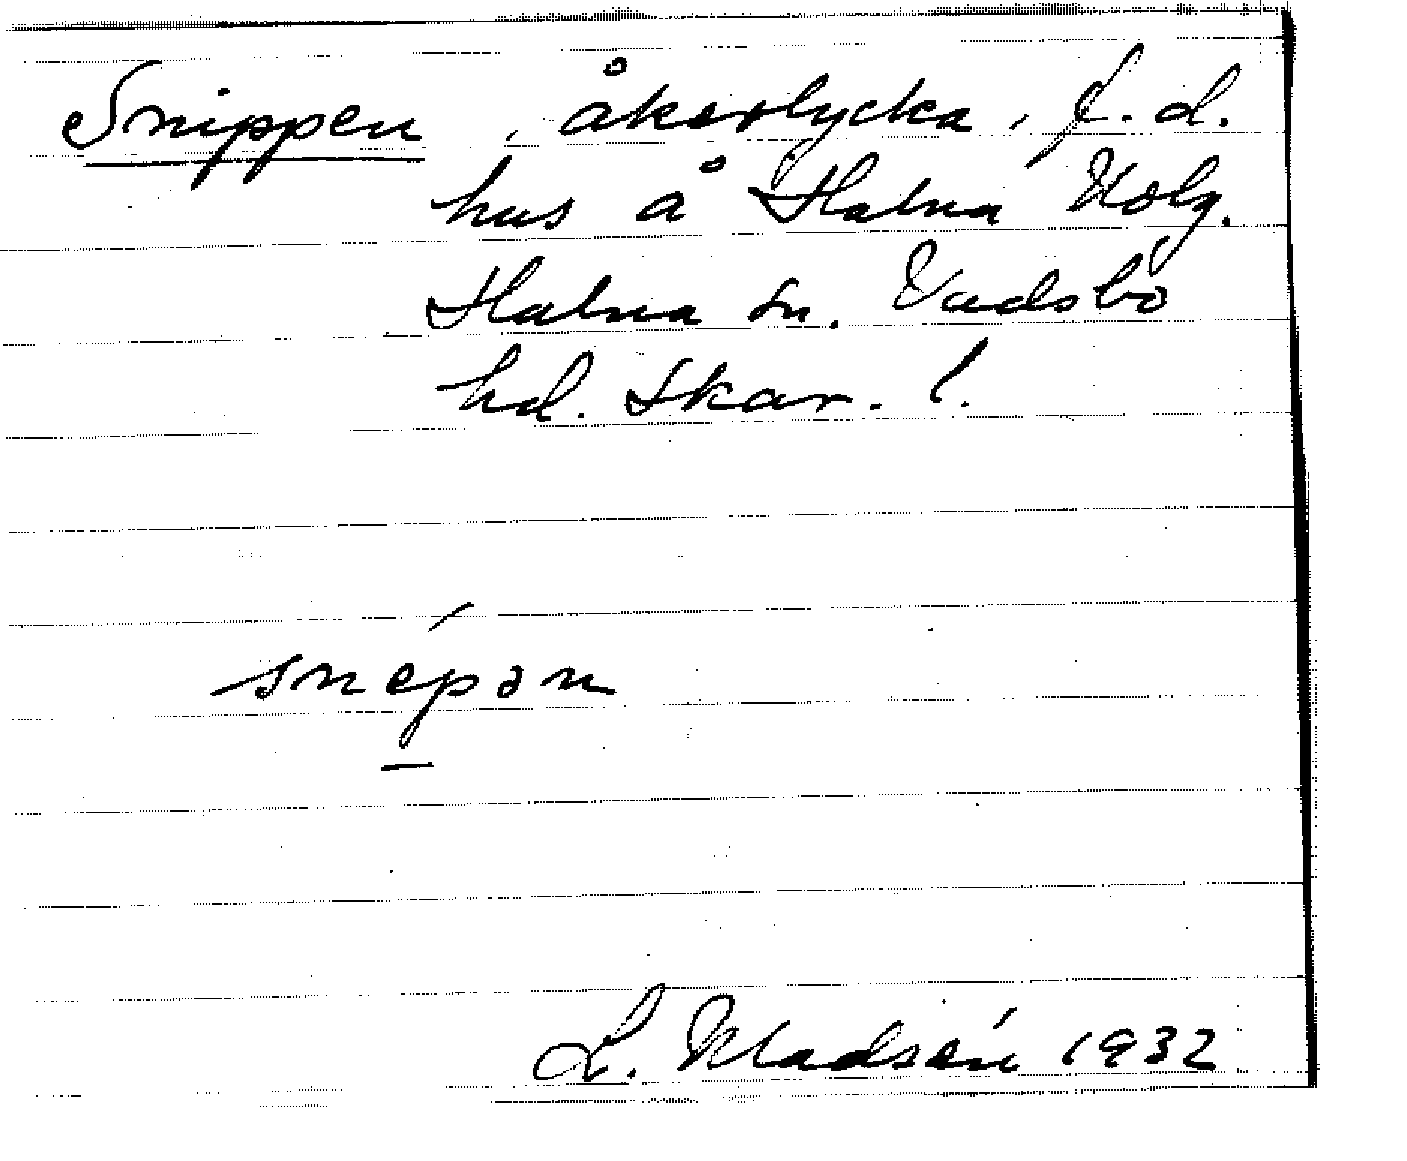 Snippen, åkerlycka, f.d.
hus å Halna Utolg.
Halna sn. Vadsbo
hd. Skar. l.
snépən
L. Madsén 1932